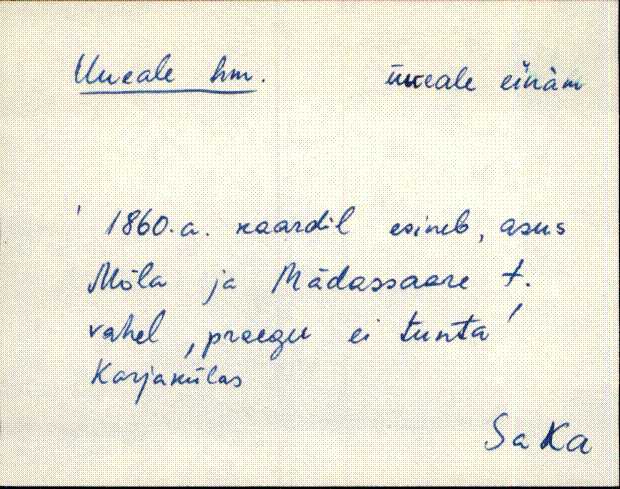 Uueale hm. üueale einäm
' 1860.a. kaardil esineb, asus
Mõla ja Mädassaare t.
vahel, praegu ei tunta'
Karjakülas
SaKa